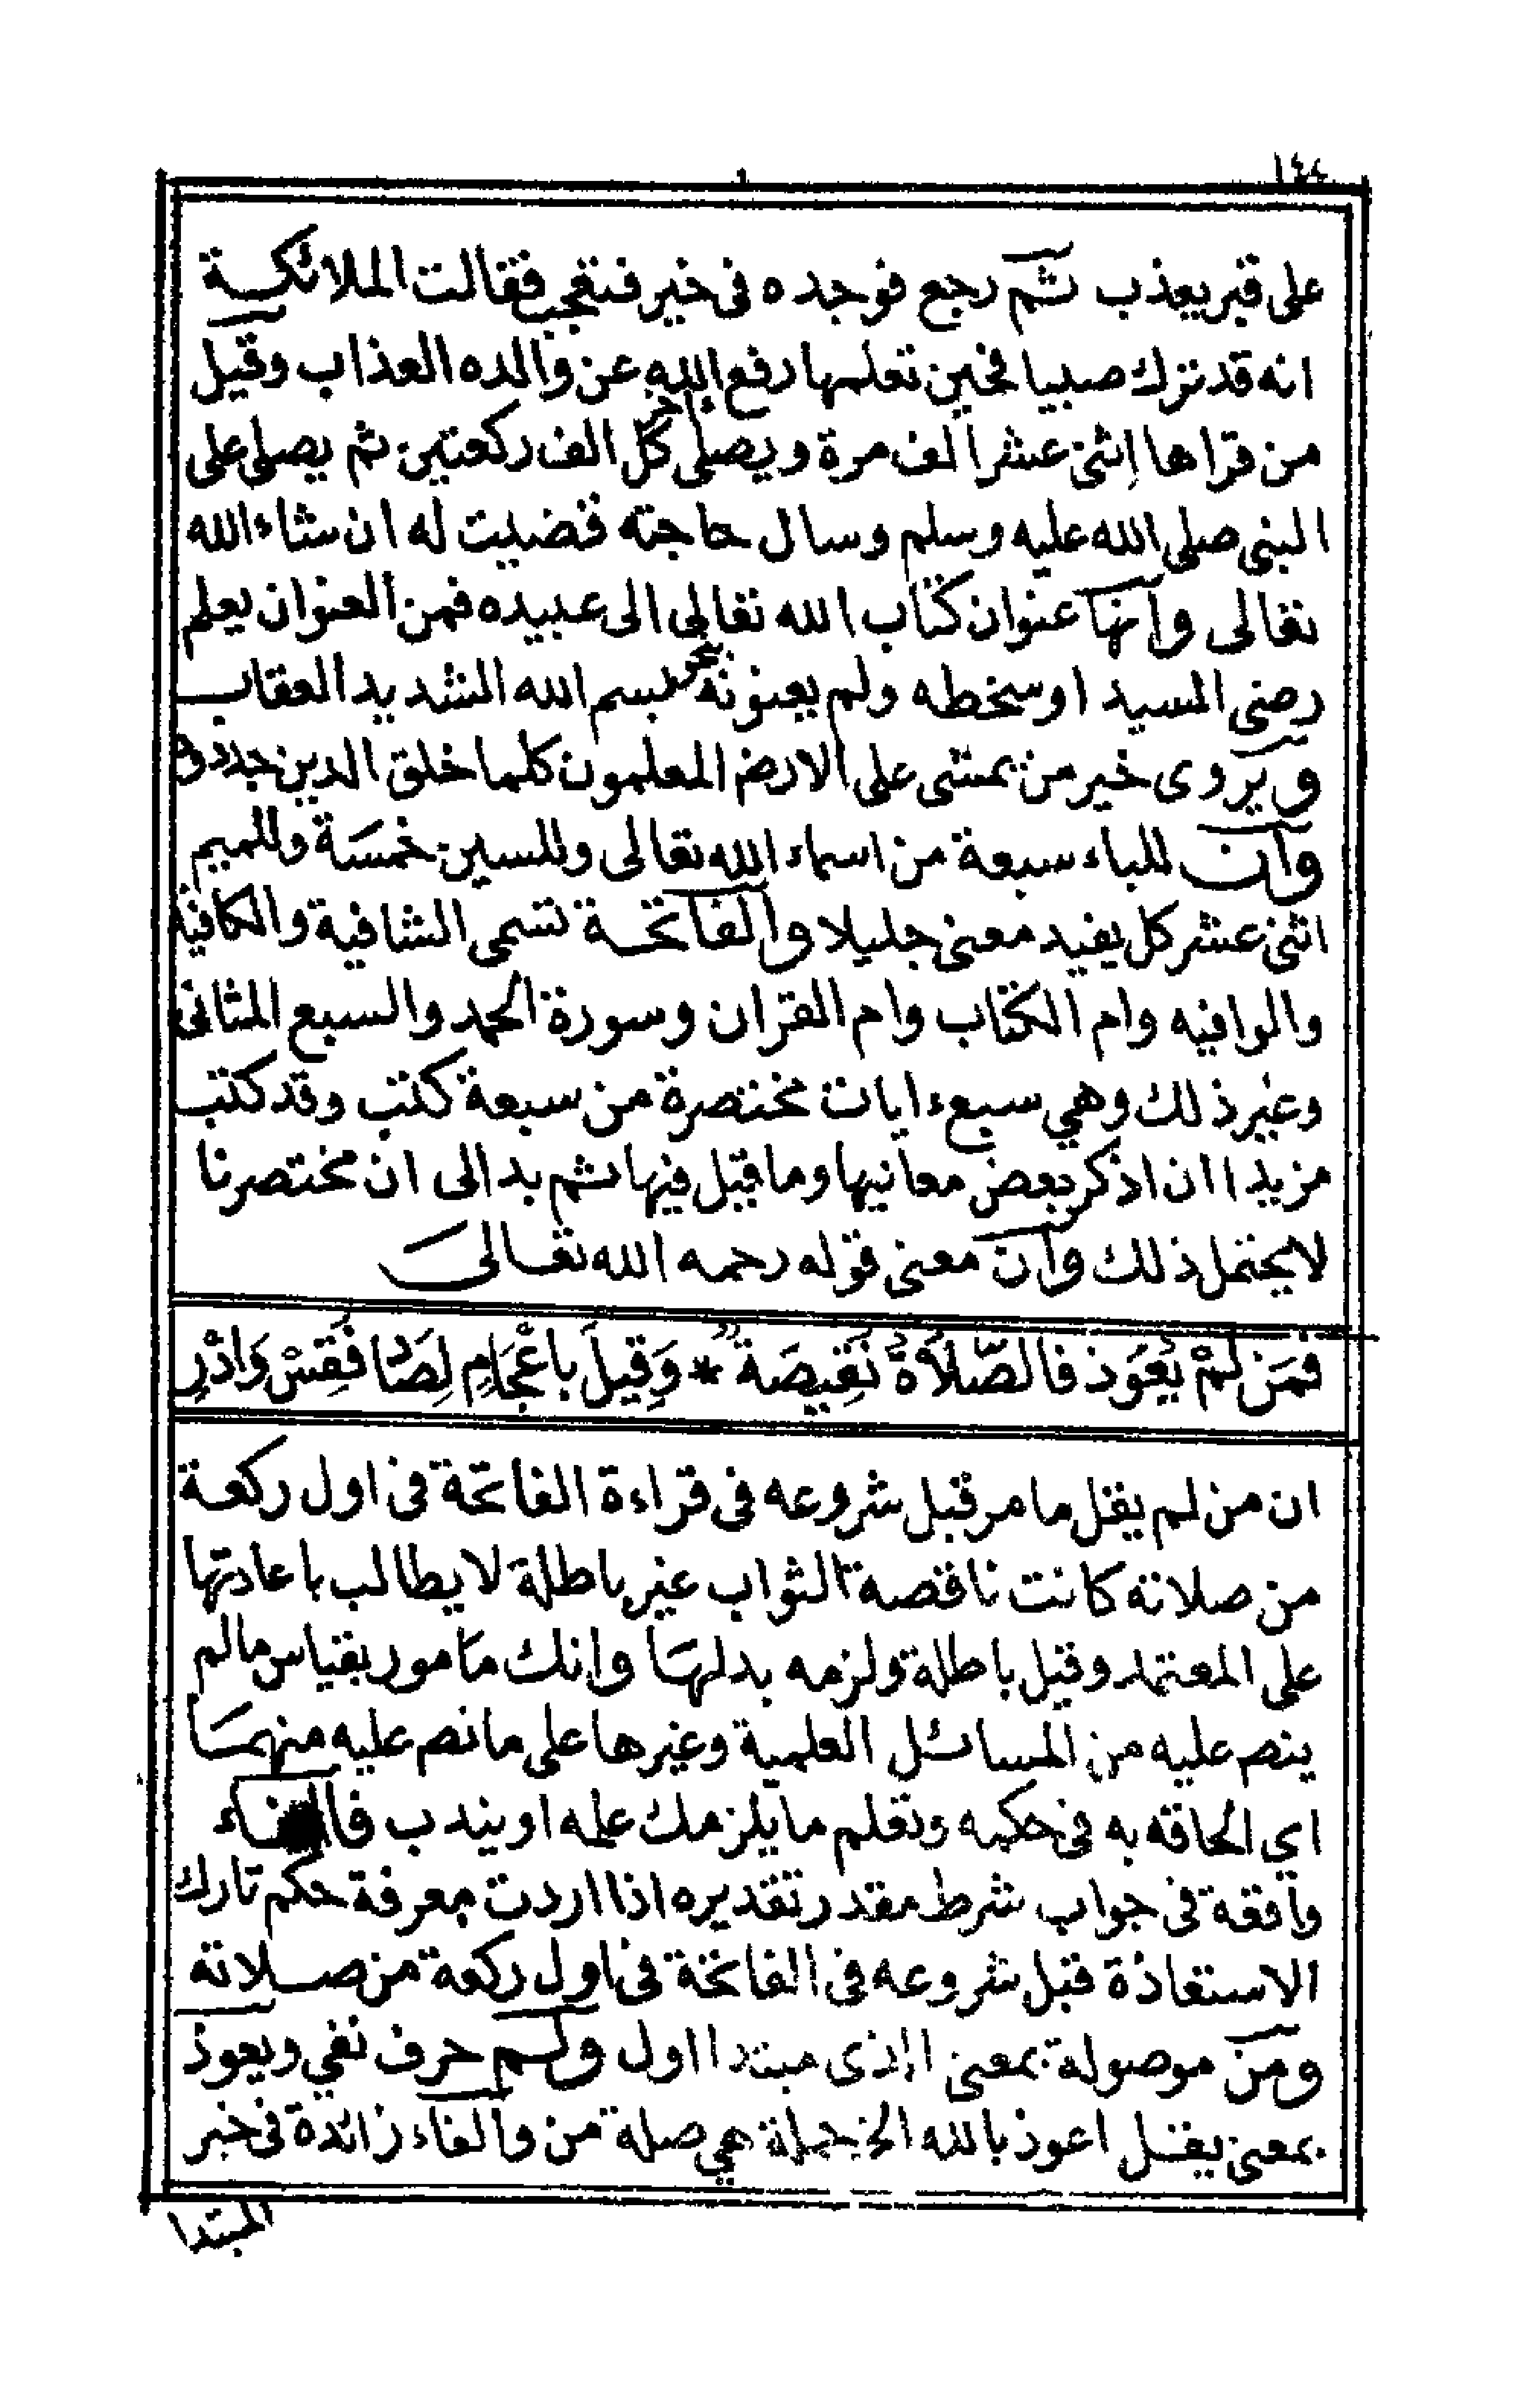 على قبر يعذب ثم رجع فوجده فى خير فتعجب فقالت الملائكة
انه قد ترك صبيا فحين تعلمها رفع الله عن والده العذاب وقيل
من قراها اثنى عشر الف مرة ويصلى اخر كل الف ركعتين ثم يصلى على
النبى صلى الله عليه وسلم وسال حاجته قضيت له ان شاء الله
تعالى وانها عنوان كتاب الله تعالى الى عبيده فمن العنوان يعلم
رضى السيد او سخطه ولم يعنونه بنحو بسم الله الشديد العقاب
ويروى خير من يمشى على الارض المعلمون كلما خلق الدين جددوه
وان للباء سبعة من اسماء الله تعالى وللسين خمسة وللميم
اثنى عشر كل يفيد معنى جليلا والفاتحة تسمى الشافية والكافية
والوافيه وام الكتاب وام القران وسورة الحمد والسبع المثانى
وغير ذلك وهي سبع ايات مختصرة من سبعة كتب وقد كنت
مزيدا ان اذكر بعض معانيها وما قيل فيها ثم بدا لى ان مختصرنا
لا يحتمل ذلك وان معنى قوله رحمه الله تعالى
فَمَن لَمْ يُعَوِّذ فَالصَّلَاةُ نَقِيصَةٌ * وَقِيلَ بِاعْجَامٍ لِصَادٍ فَقِسْ وَادْرِ
ان من لم يقل ما مر قبل شروعه فى قراءة الفاتحة فى اول ركعة
من صلاته كانت ناقصة الثواب غير باطلة لا يطالب باعادتها
على المعتمد وقيل باطلة ولزمه بدلها وانك مامور بقياس ما لم
ينص عليه من المسائل العلمية وغيرها على ما نص عليه منهما
اي الحاقه به فى حكمه وتعلم ما يلزمك علمه او يندب فالفاء
واقعة فى جواب شرط مقدر تقديره اذا اردت معرفة حكم تارك
الاستعاذة قبل شروعه فى الفاتحة فى اول ركعة من صلاته
ومن موصولة بمعنى الذى مبتدا اول ولم حرف نفي ويعوذ
بمعنى يقل اعوذ بالله الخ جملة هي صلة من والفاء زائدة فى خبر
المبتدا